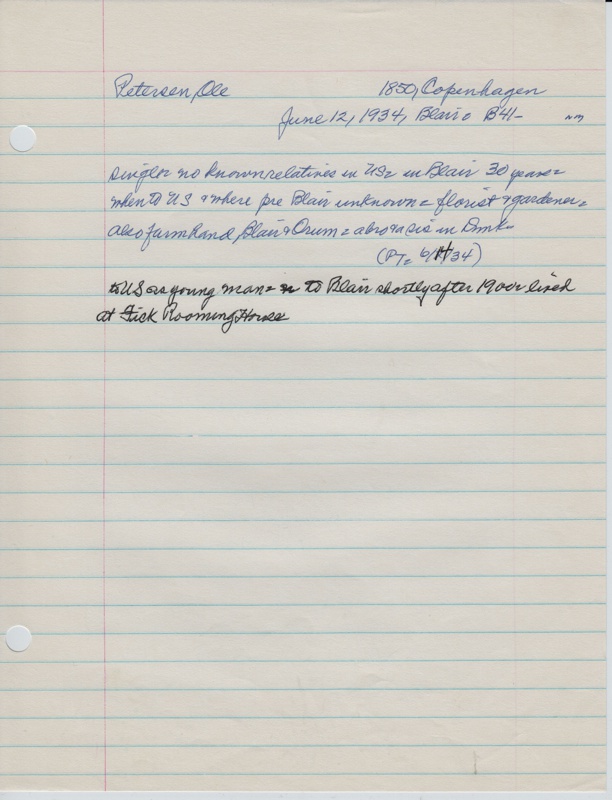 Petersen, Ole 1850, Copenhagen
June 12, 1934, Blair = B41- NM
single = no known relatives in US = in Blair 30 years =
when to US & where pre Blair unknown = florist & gardener =
also farmhand, Blair & Orum = a bro & a sis in Dmk =
(PT = 6/14/34)
to US as young man = to Blair shortly after 1900 = lived
at Fick Rooming House